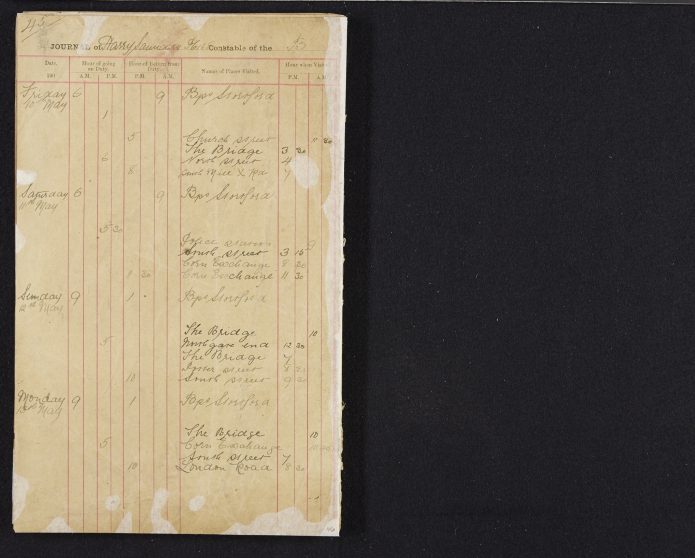 45
JOURNAL of Harry Saunders Constable of the B
Date. Hour of going on Duty. Hour of Return from Duty. Names of Places Visited. Hour when Visited
190 A.M. P.M. P.M. A.M. P.M. A.M.
Friday 6 9 Bps Stortford
10th May
1
5 Church street 11 30
The Bridge 3 30
6 North street 4
8 South Mill X Rd 7
Saturday 6 9 Bps Stortford
11th May
5 30
Police station 9
South street 3 15
Corn Exchange 8 30
1 30 Corn Exchange 11 30
Sunday 9 1 Bps Stortford
12th May
The Bridge 10
5 Northgate end 12 30
The Bridge 7
street 8
10 South street 9
Monday 9 1 Bps Stortford
13th May
The Bridge 10
5 Corn Exchange
South street 7
10 London Road 8 30